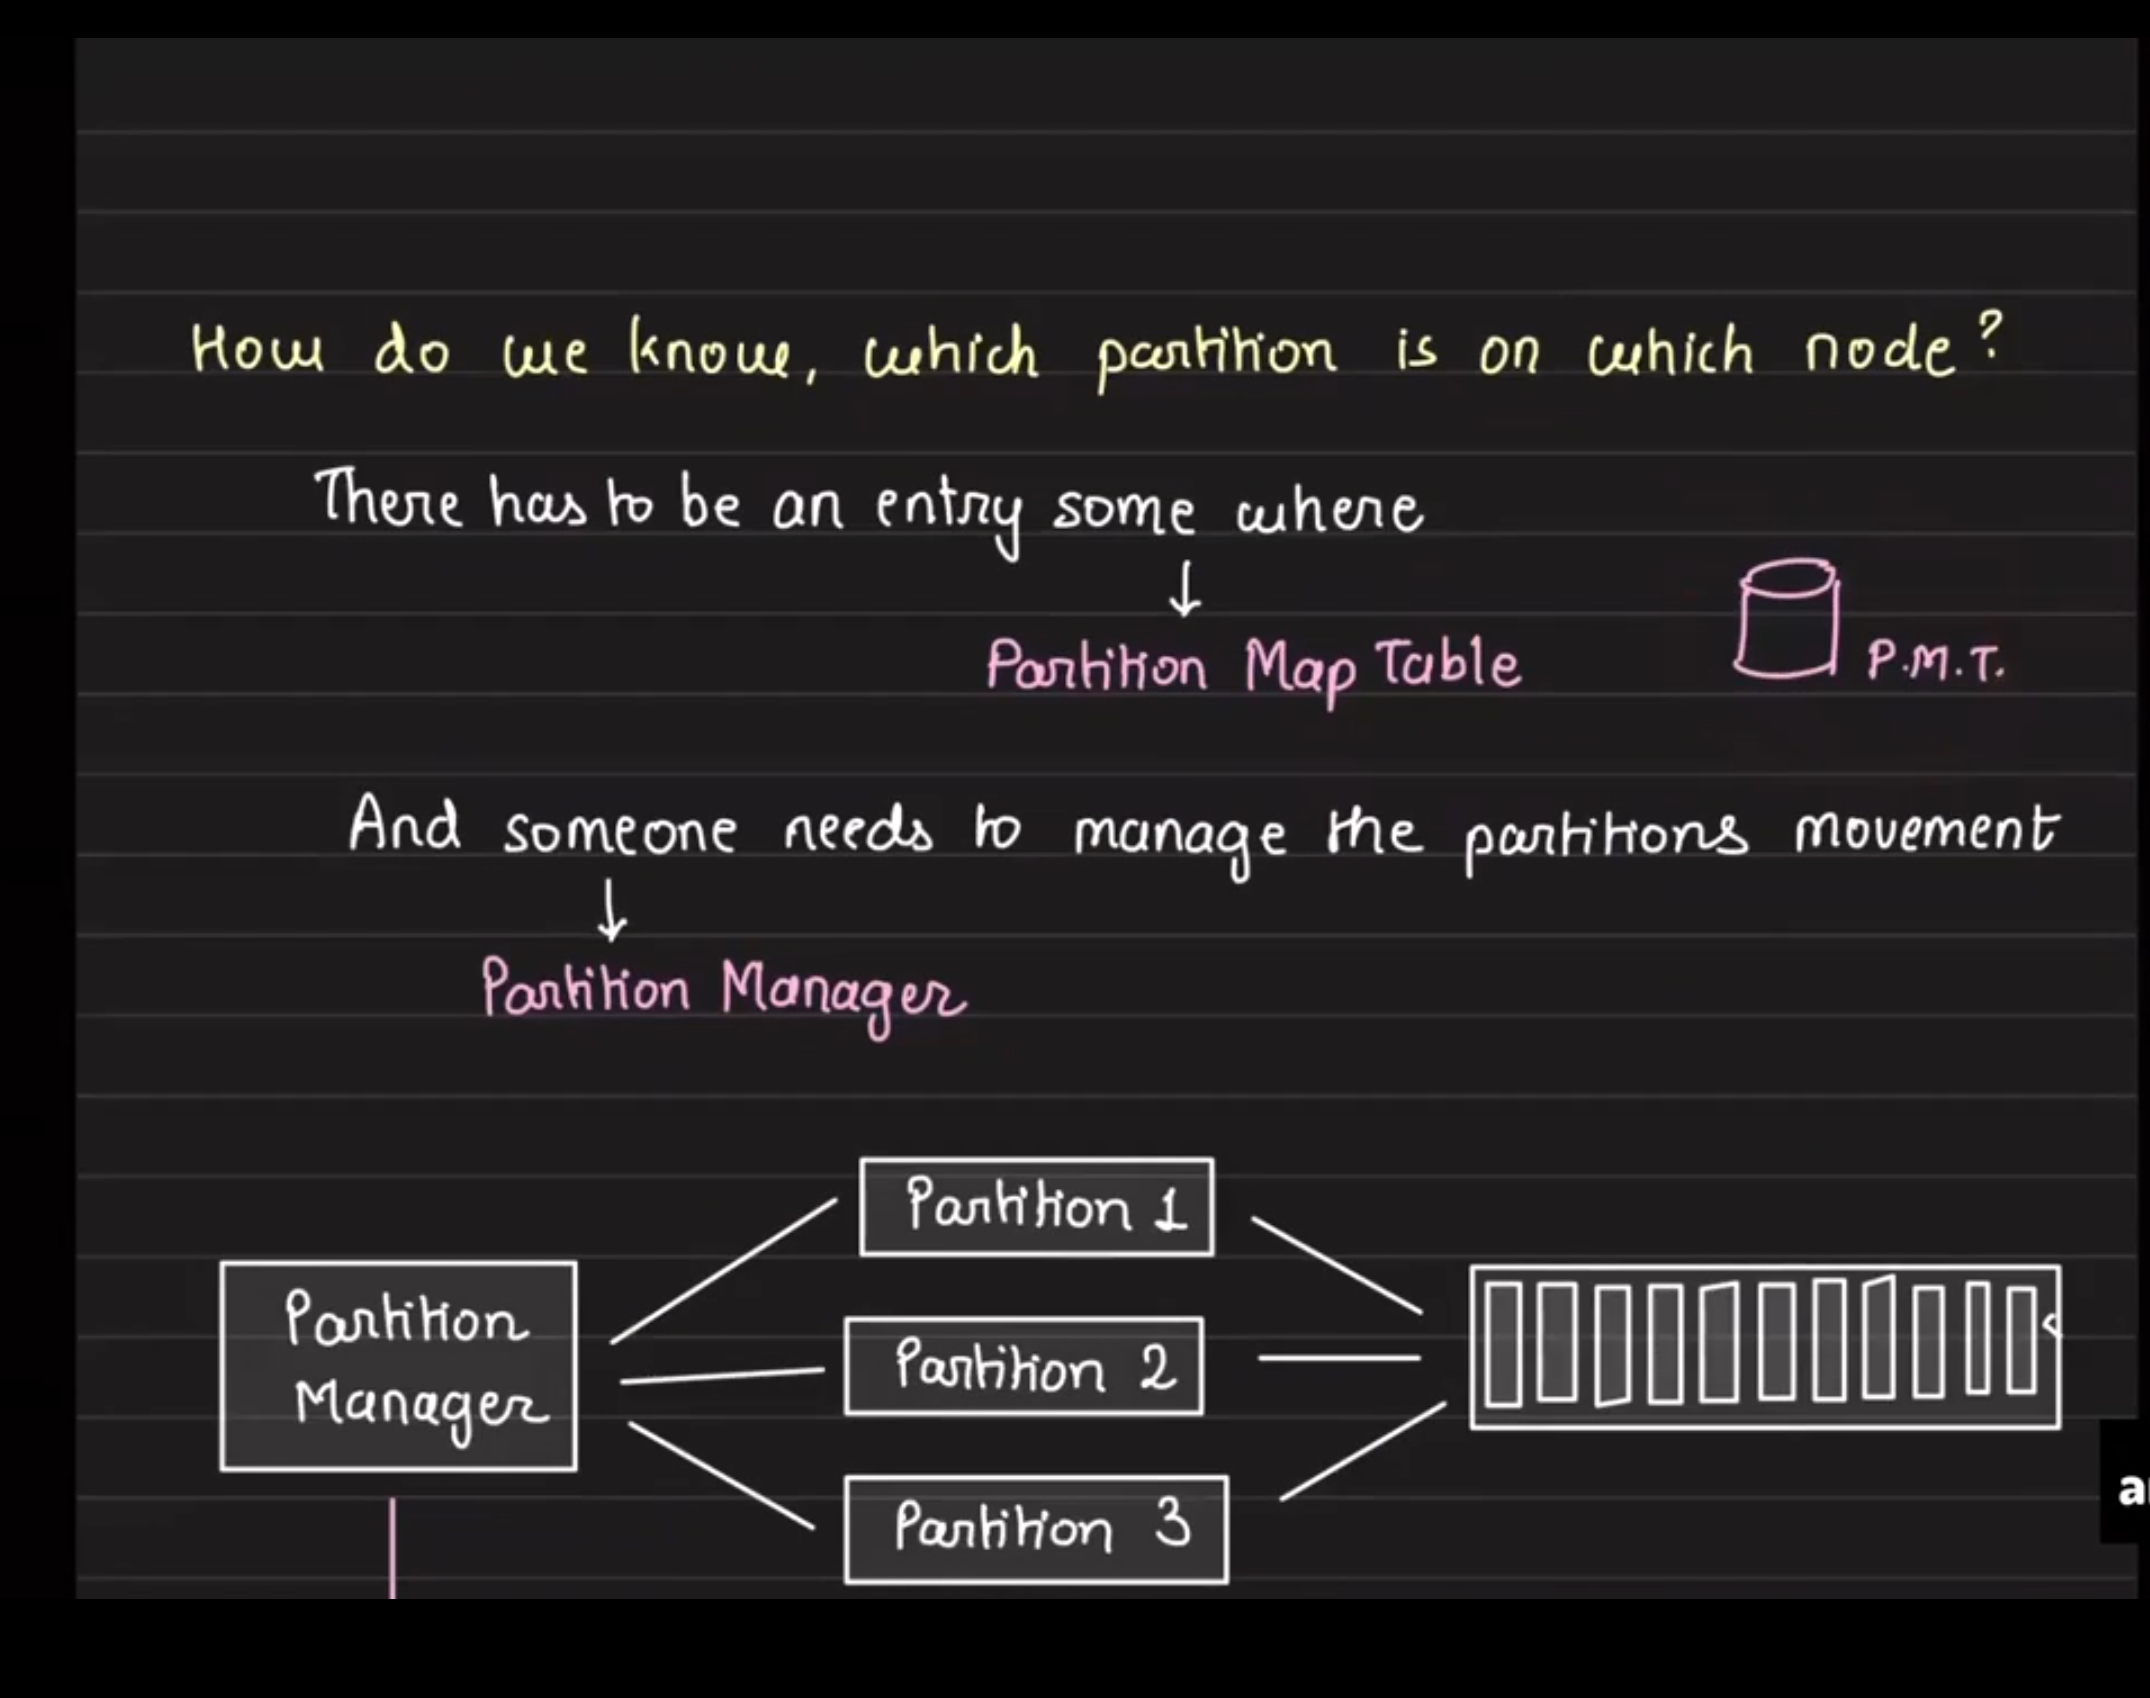 How do we know, which partition is on which node?
There has to be an entry some where
↓
Partition Map Table
P.M.T.
And someone needs to manage the partitions movement
↓
Partition Manager
Partition 1
Partition
Manager
Partition 2
Partition 3